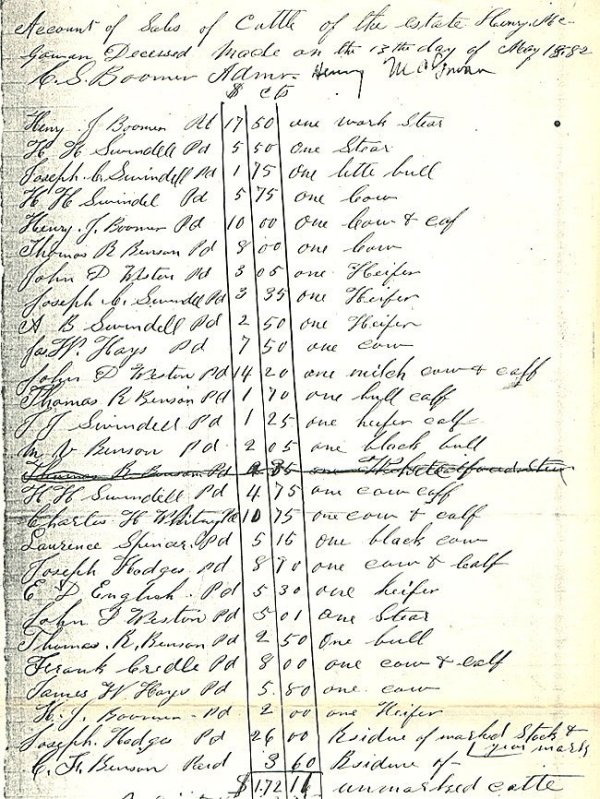 Account of Sales of Cattle of the estate Henry Mc-
Gowan Deceased Made on the 13th day of May 1882
H. S. Boomer Admr. Henry McGowan
$ cts
Henry J Boomer Pd 17 50 one work Stear
H H Swindell Pd 5 50 one Stear
Joseph C. Swindell Pd 1 75 one little bull
H H Swindel Pd 5 75 one Cow
Henry J. Boomer Pd 10 00 one Cow & caf
Thomas R Benson Pd 8 00 one Cow
John D Weston Pd 3 05 one Heifer
Joseph C. Swindell Pd 3 35 one Heifer
A B Swindell Pd 2 50 one Heifer
Jas W. Hays Pd 7 50 one cow
John D Weston Pd 14 20 one milch cow & caff
Thomas R Benson Pd 1 70 one bull caff
J J Swindell Pd 1 25 one heifer calf
Benson Pd 2 05 one black bull
Benson Pd one
H H Swindell Pd 4 75 one cow caff
Charles H Whitney Pd 10 75 one cow & calf
Laurence Spencer Pd 5 15 one black cow
Joseph Hodges Pd 8 70 one cow & calf
E D English. Pd 5 30 one heifer
John D Weston Pd 5 01 one Stear
Thomas. R. Benson Pd 2 50 one bull
Frank Credle Pd 8 00 one cow & calf
James W Hays Pd 5.80 one cow
H. J. Boomer Pd 2 00 one Heifer
Joseph. Hodges Pd 26 00 Residue of marked Stock &
mark
C. H. Benson Paid 3 60 Residue of
$172 16 unmarked catte